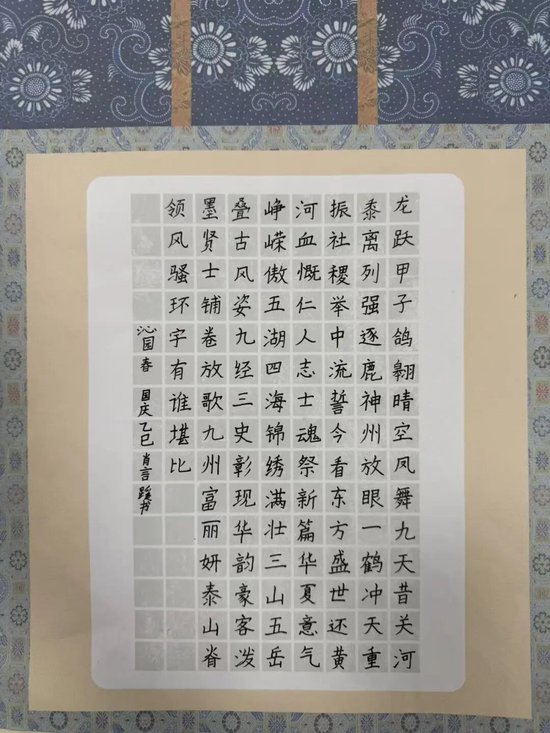 龙跃甲子鸽翱晴空凤舞九天昔关河
黍离列强逐鹿神州放眼一鹤冲天重
振社稷举中流誓今看东方盛世还黄
河血慨仁人志士魂祭新篇华夏意气
峥嵘傲五湖四海锦绣满壮三山五岳
叠古风姿九经三史彰现华韵豪客泼
墨贤士铺卷放歌九州富丽妍泰山脊
领风骚环宇有谁堪比
沁园春 国庆乙巳 肖言蹊书